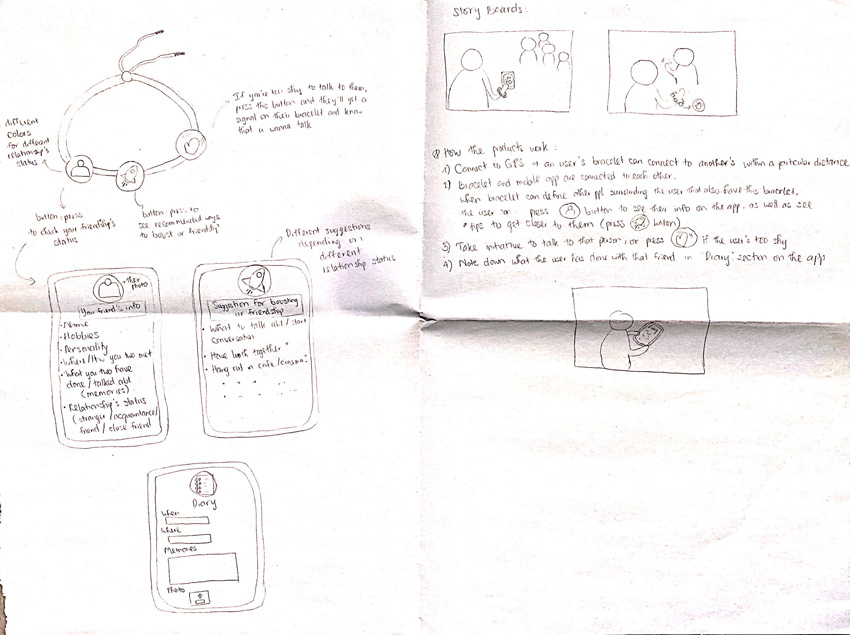 If you're too shy to talk to them,
press this button and they'll get a
signal on their bracelet and know
that u wanna talk
different
colors
for different
relationship's
status
button: press
to check your friendship's
status
button: press to
see recommended ways
to boost ur friendship
Different suggestions
depending on
different
relationship status
their
photo
Your friend's info
• Name
• Hobbies
• Personality
• Where/How you two met
• What you two have
done / talked abt
(memories)
• Relationship's status
(stranger / acquaintance /
friend / close friend
Suggestion for boosting
ur friendship
• What to talk abt / start
conversation
• Have lunch together
• Hang out in cafe/cinema
Diary
When
Where
Memories
Photo
Story Boards:
How the products work:
1) Connect to GPS → an user's bracelet can connect to another's within a particular distance
2) Bracelet and mobile app are connected to each other.
When bracelet can define other ppl surrounding the user that also have this bracelet,
the user can press button to see their info on the app, as well as see
tips to get closer to them (press button)
3) Take initiative to talk to that person, or press if the user's too shy
4) Note down what the user has done with that friend in "Diary" section on the app